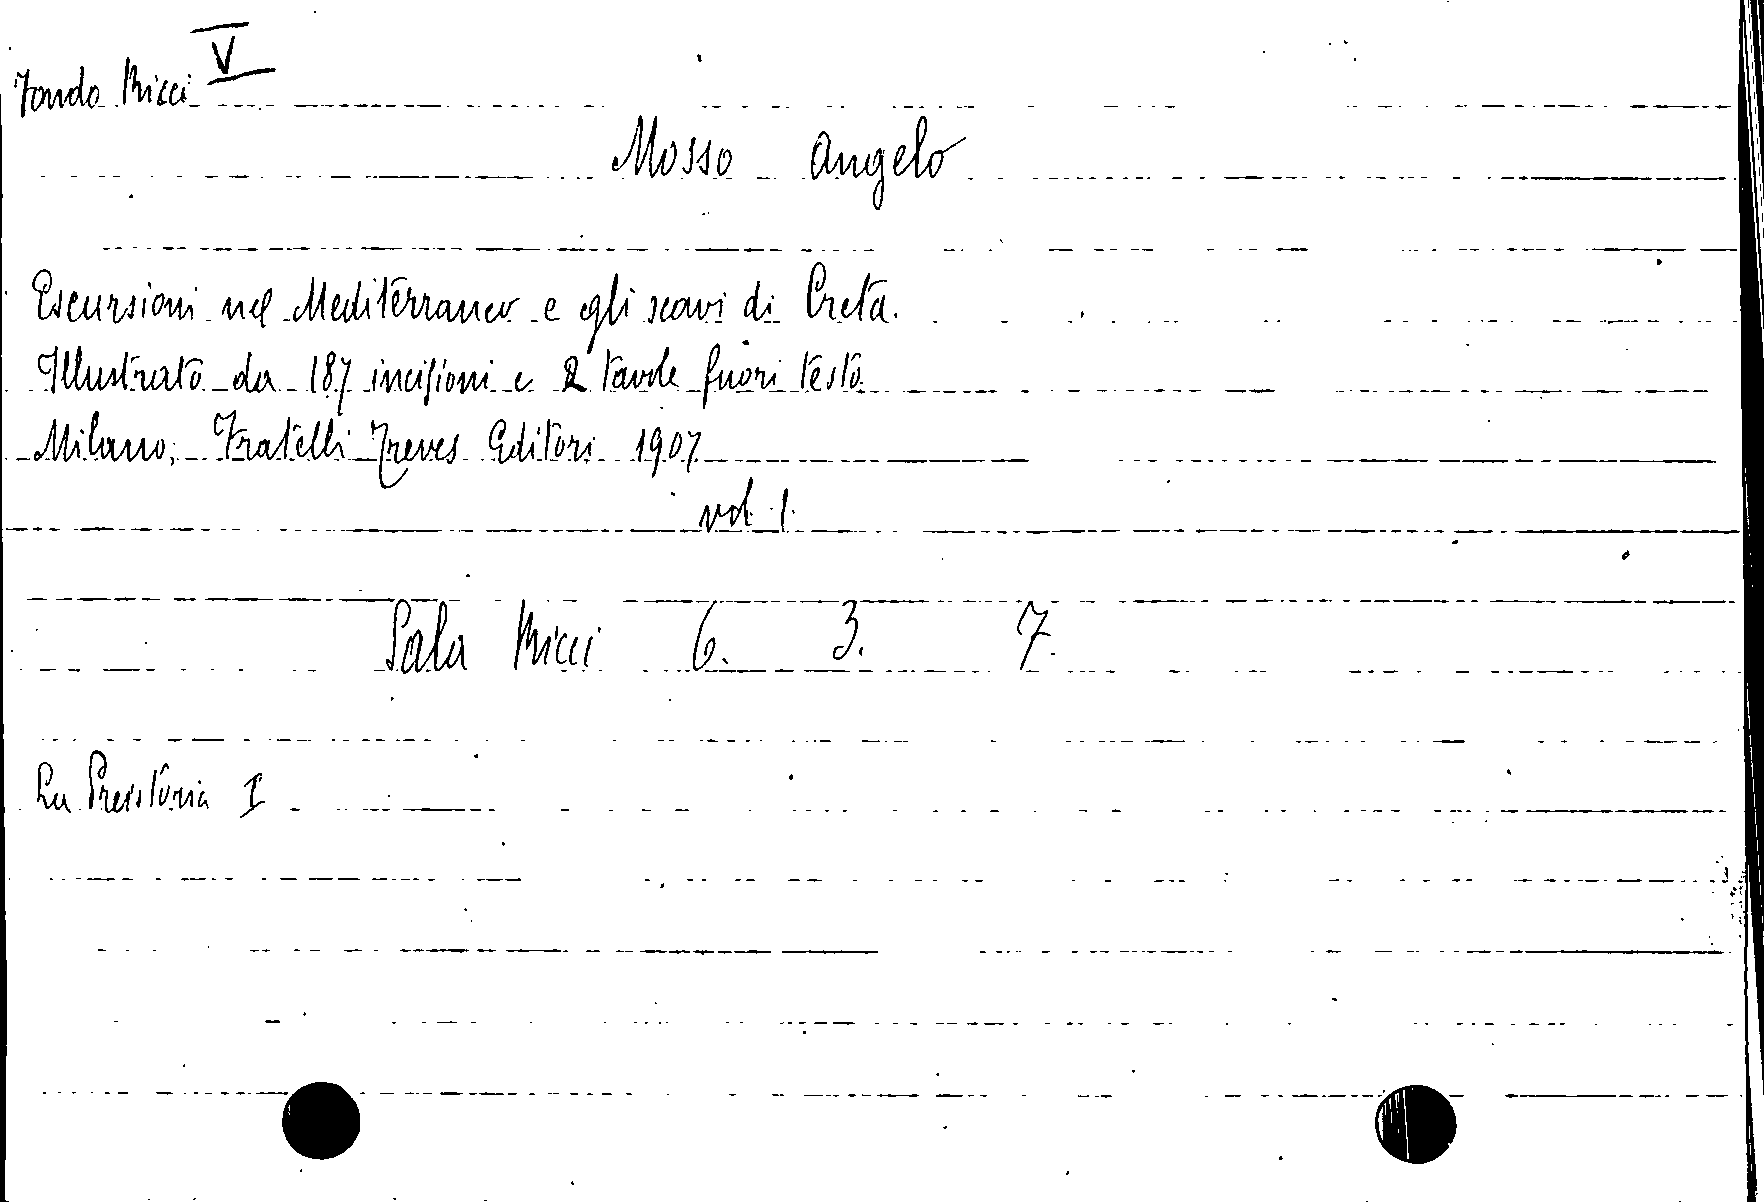 Fondo Ricci V
Mosso Angelo
Escursioni nel Mediterraneo e gli scavi di Creta.
Illustrato da 187 incisioni e 2 tavole fuori testo
Milano, Fratelli Treves Editori 1907
vol. 1.
Sala Ricci 6. 3. 7.
La Preistoria I